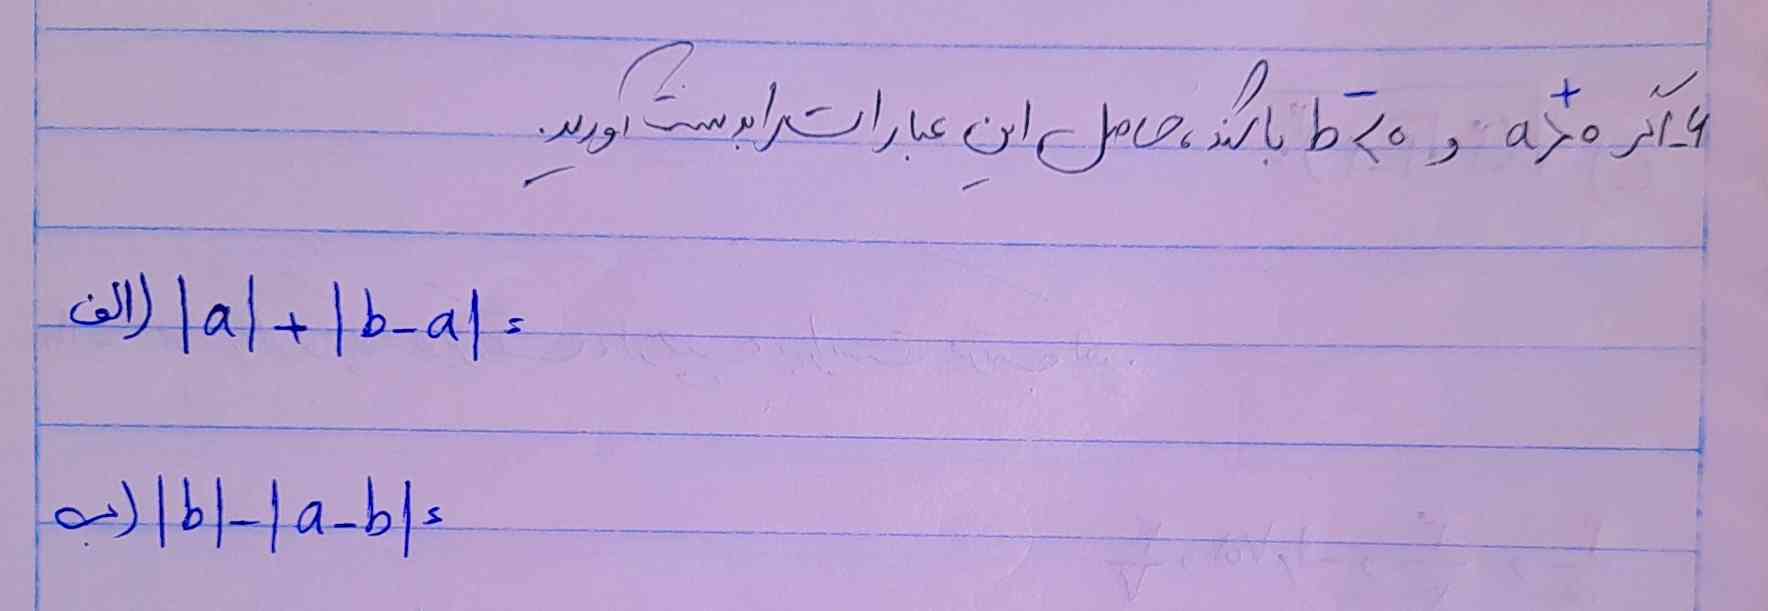 ۶- اگر a>0 و b<0 باشند، حاصل این عبارات را بدست آورید.
الف) |a|+|b-a|=
ب) |b|-|a-b|=